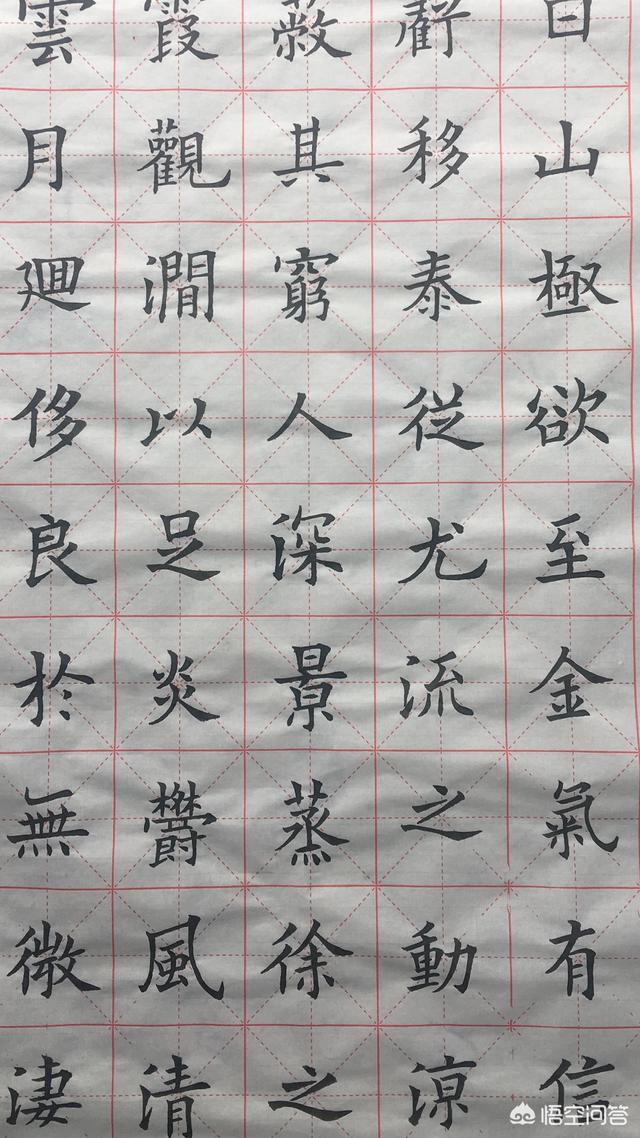 雲霞蔽虧日
月觀其移山
廻澗窮泰極
侈以人從欲
良足深尤至
於炎景流金
無鬱蒸之氣
微風徐動有
淒清之涼信
悟空问答